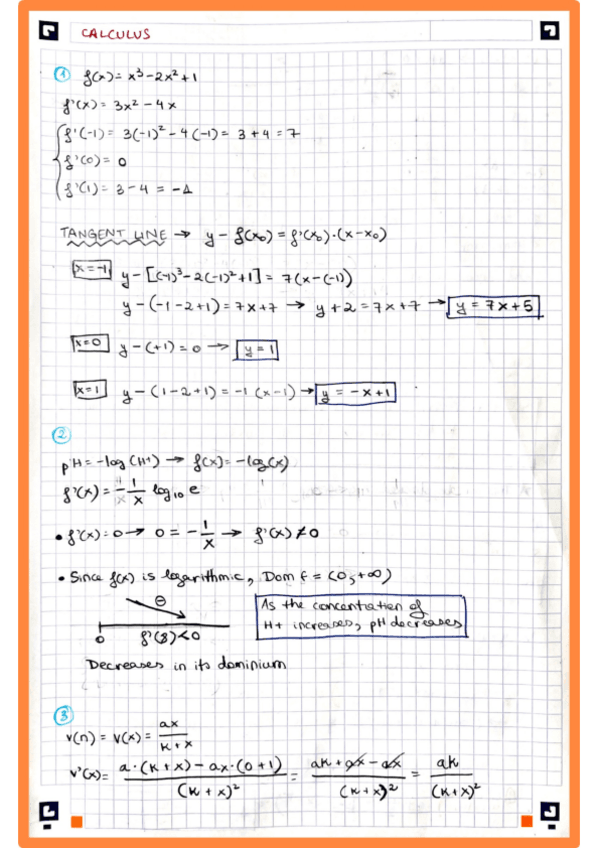 CALCULUS
① f(x) = x³ - 2x² + 1
f'(x) = 3x² - 4x
f'(-1) = 3(-1)² - 4(-1) = 3 + 4 = 7
f'(0) = 0
f'(1) = 3 - 4 = -1
TANGENT LINE → y - f(x₀) = f'(x₀)·(x-x₀)
x=-1 y - [(-1)³ - 2(-1)² + 1] = 7(x-(-1))
y - (-1-2+1) = 7x+7 → y+2 = 7x+7 → y = 7x+5
x=0 y - (+1) = 0 → y = 1
x=1 y - (1-2+1) = -1 (x-1) → y = -x+1
②
pH = -log(H+) → f(x) = -log(x)
f'(x) = -1/x log₁₀ e
• f'(x) = 0 → 0 = -1/x → f'(x) ≠ 0
• Since f(x) is logarithmic, Dom f = (0, +∞)
⊖
0 f'(3)<0
As the concentration of
H+ increases, pH decreases
Decreases in its dominium
③
v(n) = v(x) = ax/(k+x)
v'(x) = (a·(k+x) - ax·(0+1))/(k+x)² = (ak + ax - ax)/(k+x)² = ak/(k+x)²